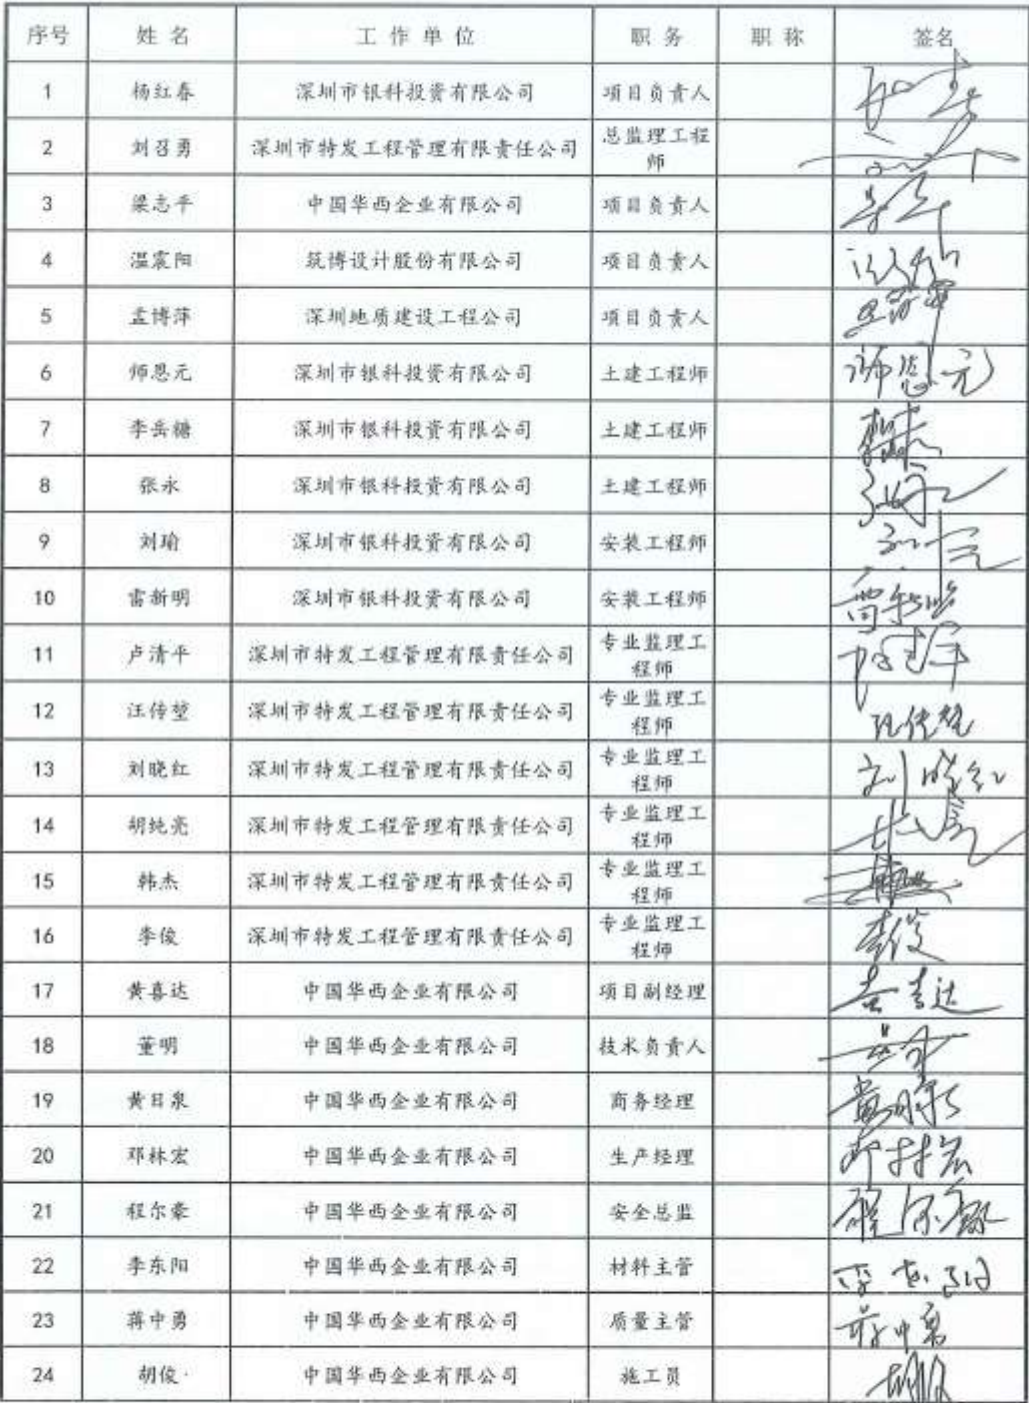 序号 姓名 工作单位 职务 职称 签名
1 杨红春 深圳市银科投资有限公司 项目负责人
2 刘召勇 深圳市特发工程管理有限责任公司 总监理工程
师
3 梁志平 中国华西企业有限公司 项目负责人
4 温震阳 筑博设计股份有限公司 项目负责人
5 孟博萍 深圳地质建设工程公司 项目负责人
6 师恩元 深圳市银科投资有限公司 土建工程师 师恩元
7 李岳糖 深圳市银科投资有限公司 土建工程师
8 张永 深圳市银科投资有限公司 土建工程师 张永
9 刘瑜 深圳市银科投资有限公司 安装工程师
10 雷新明 深圳市银科投资有限公司 安装工程师 雷新明
11 卢清平 深圳市特发工程管理有限责任公司 专业监理工
程师
12 汪传堃 深圳市特发工程管理有限责任公司 专业监理工
程师
13 刘晓红 深圳市特发工程管理有限责任公司 专业监理工
程师 刘晓红
14 胡纯亮 深圳市特发工程管理有限责任公司 专业监理工
程师
15 韩杰 深圳市特发工程管理有限责任公司 专业监理工
程师
16 李俊 深圳市特发工程管理有限责任公司 专业监理工
程师 李俊
17 黄喜达 中国华西企业有限公司 项目副经理 黄喜达
18 董明 中国华西企业有限公司 技术负责人
19 黄日泉 中国华西企业有限公司 商务经理
20 邓林宏 中国华西企业有限公司 生产经理 邓林宏
21 程尔豪 中国华西企业有限公司 安全总监 程尔豪
22 李东阳 中国华西企业有限公司 材料主管 李东阳
23 蒋中勇 中国华西企业有限公司 质量主管 蒋中勇
24 胡俊 中国华西企业有限公司 施工员 胡俊